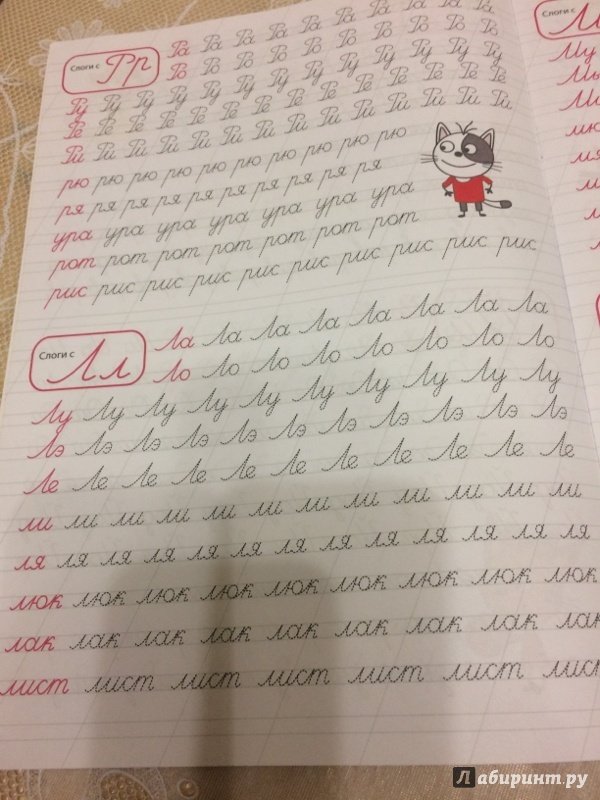 Слоги с Рр
Ра Ра Ра Ра Ра Ра Ра Ра Ра Ра
Ро Ро Ро Ро Ро Ро Ро Ро Ро Ро
Ру Ру Ру Ру Ру Ру Ру Ру Ру Ру Ру Ру Ру
Ре Ре Ре Ре Ре Ре Ре Ре Ре Ре Ре Ре Ре Ре
Ри Ри Ри Ри Ри Ри Ри Ри Ри Ри Ри Ри Ри Ри
рю рю рю рю рю рю рю рю рю рю
ря ря ря ря ря ря ря ря ря ря
ура ура ура ура ура ура ура
рот рот рот рот рот рот рот
рис рис рис рис рис рис рис рис рис рис
Слоги с Лл
Ла Ла Ла Ла Ла Ла Ла Ла
Ло Ло Ло Ло Ло Ло Ло Ло
Лу Лу Лу Лу Лу Лу Лу Лу Лу Лу
Лэ Лэ Лэ Лэ Лэ Лэ Лэ Лэ Лэ Лэ Лэ
Ле Ле Ле Ле Ле Ле Ле Ле Ле Ле Ле
ли ли ли ли ли ли ли ли ли ли ли ли
ля ля ля ля ля ля ля ля ля ля ля ля ля
люк люк люк люк люк люк люк люк люк
лак лак лак лак лак лак лак лак лак
лист лист лист лист лист лист лист
Слоги с М
Му
Мы
мю
мя
Лабиринт.ру